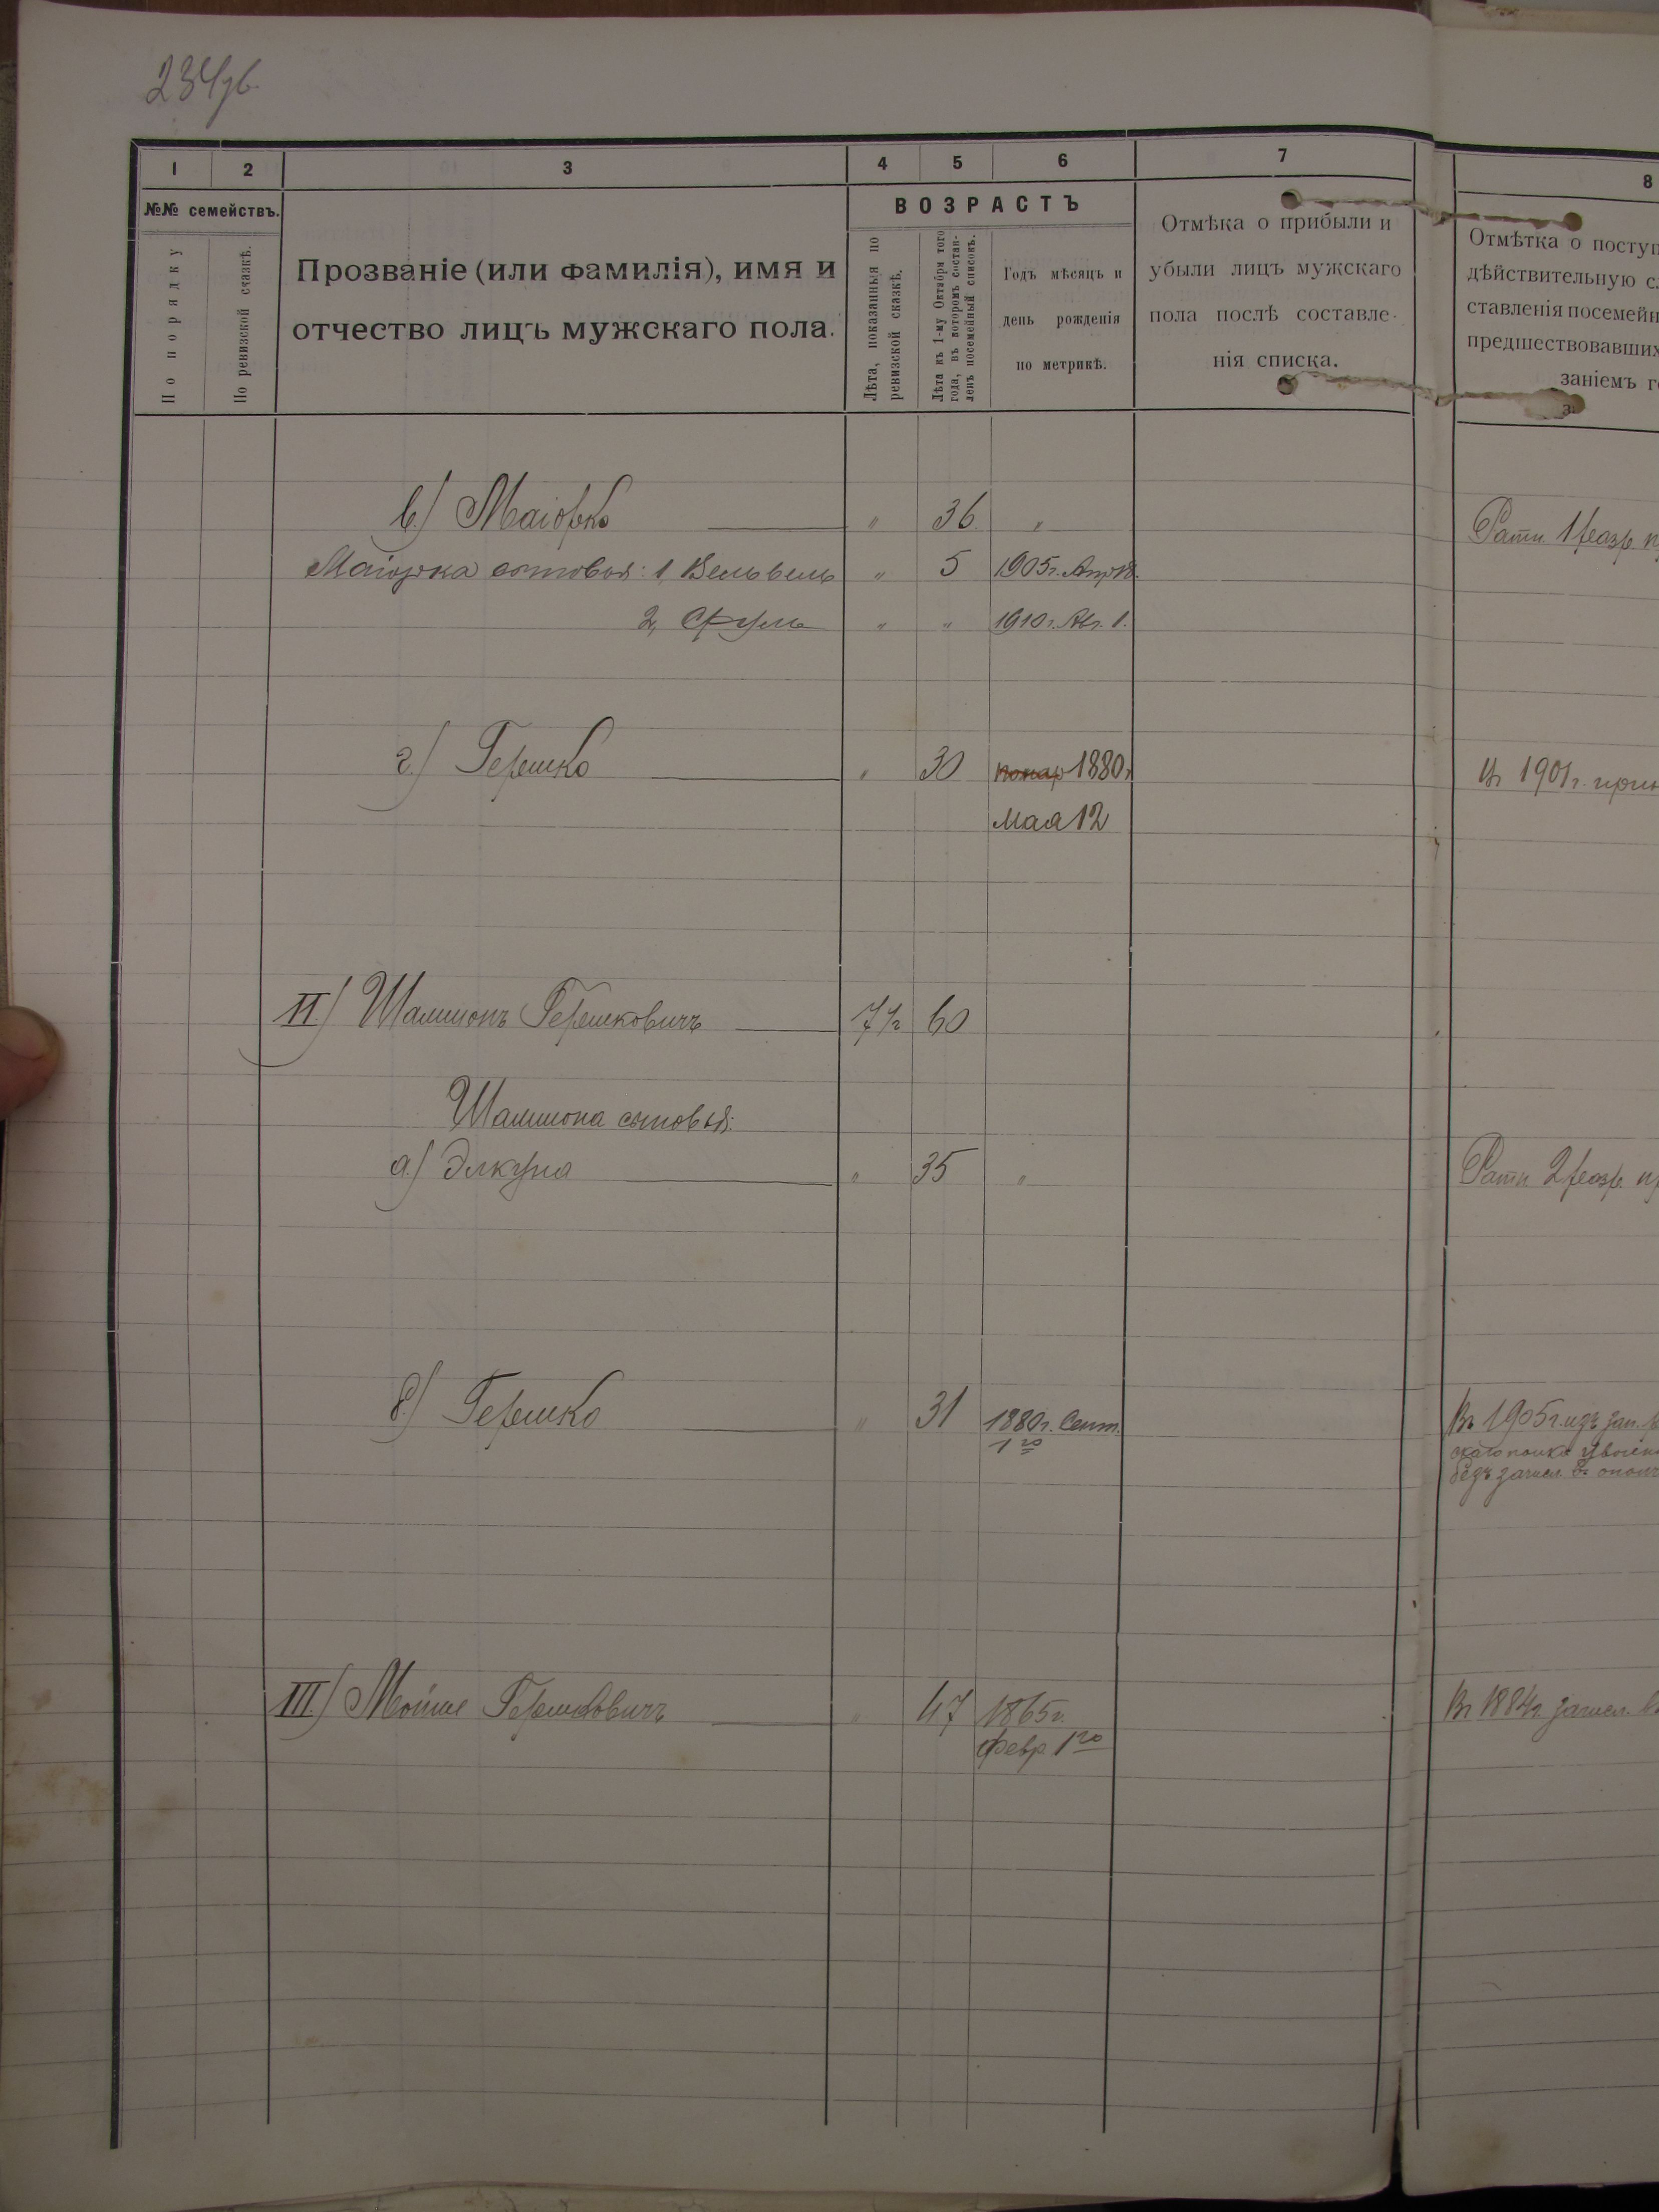 234об.
1 2 3 4 5 6 7 8
№№ семействъ.
По порядку
По ревизской сказкѣ.
Прозваніе (или фамилія), имя и
отчество лицъ мужскаго пола.
ВОЗРАСТЪ
Лѣта, показанныя по
ревизской сказкѣ.
Лѣта къ 1-му Октября того
года, въ которомъ состав-
ленъ посемейный списокъ.
Годъ мѣсяцъ и
день рожденія
по метрикѣ.
Отмѣка о прибыли и
убыли лицъ мужскаго
пола послѣ составле-
нія списка.
Отмѣтка о поступ
дѣйствительную сл
ставленія посемейн
предшествовавших
заніемъ го
в) Маіорко " 36 " Ратн. 1 разр. п
Маіорка сыновья: 1, Вельвель " 5 1905г. Апр 18.
2, Сруль " " 1910г. Авг. 1.
г) Гершко " 30 1880г Въ 1901г. при
мая 12
II) Шамшонъ Гершковичъ 7½ 60
Шамшона сыновья:
а) Элкуна " 35 " Ратн 2 разр. п
б) Гершко " 31 1880г. Сент. Въ 1905г. изъ зап.
1го скаго полка уволен
безъ зачисл. въ ополч
III) Мойше Гершковичъ " 47 1865г. Въ 1884г. зачисл. въ
Февр. 1го